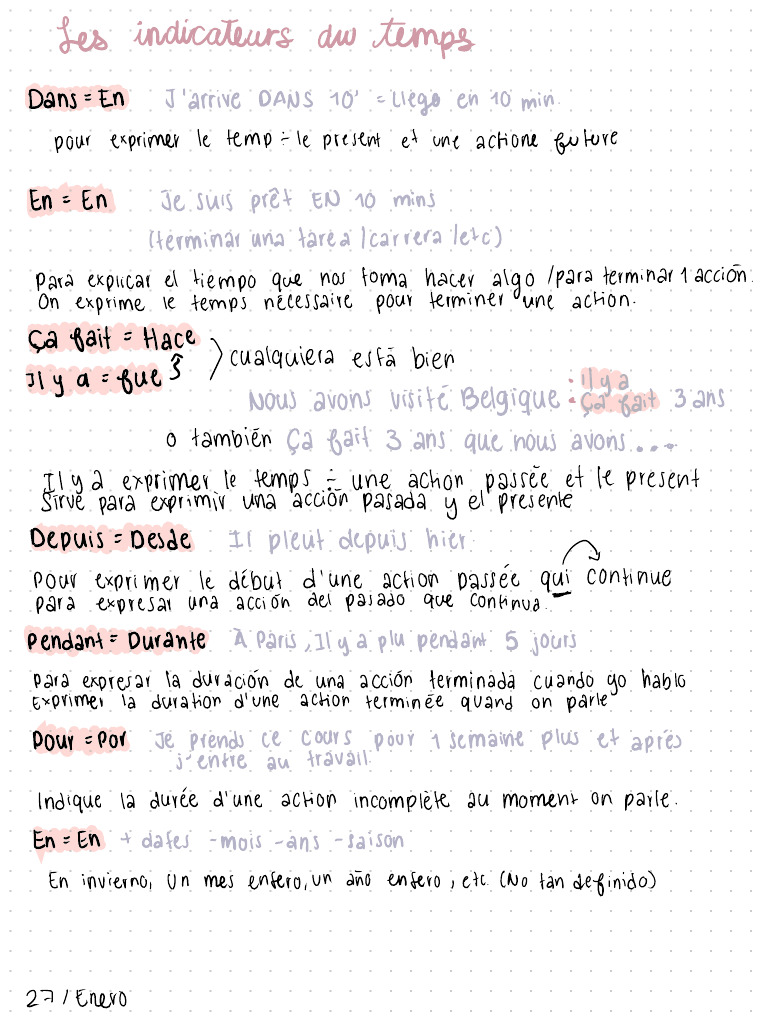 Les indicateurs du temps
Dans = En J'arrive DANS 10' = Llego en 10 min
pour exprimer le temp ÷ le present et une actione future
En = En Je suis prêt EN 10 mins
(terminar una tarea / carrera / etc)
Para explicar el tiempo que nos toma hacer algo / para terminar 1 acción.
On exprime le temps nécessaire pour terminer une action.
Ça fait = Hace
Il y a = fue
cualquiera está bien
Nous avons visité Belgique : il y a
Ça fait 3 ans
o también Ça fait 3 ans que nous avons....
Il y a exprimer le temps ÷ une action passée et le present
Sirve para exprimir una acción pasada y el presente
Depuis = Desde Il pleut depuis hier
Pour exprimer le début d'une action passée qui continue
para expresar una acción del pasado que continua.
Pendant = Durante À Paris, Il y a plu pendant 5 jours
Para expresar la duración de una acción terminada cuando yo hablo
Exprimer la duration d'une action terminée quand on parle
Pour = Por Je prends ce cours pour 1 semaine plus et après
j'entre au travail.
Indique la durée d'une action incomplète au moment on parle.
En = En + dates - mois - ans - saison
En invierno, Un mes entero, un año entero, etc (No tan definido)
27 / Enero